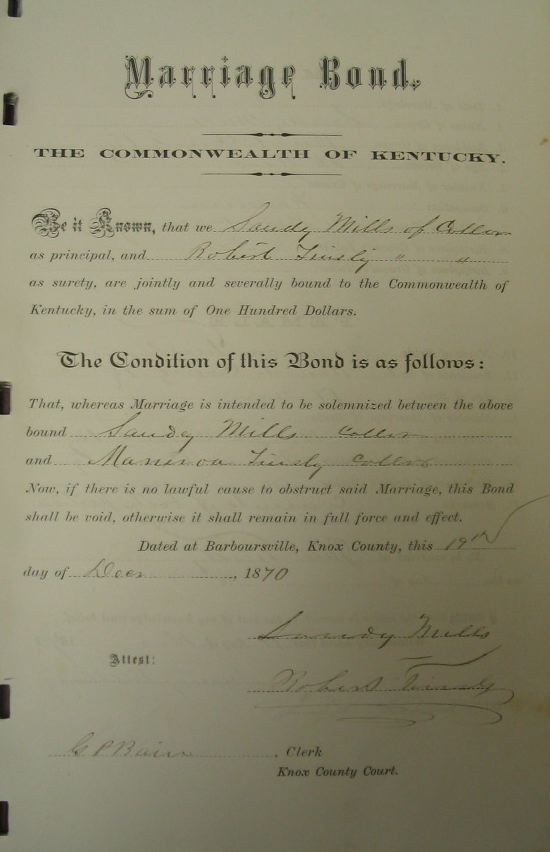 Marriage Bond.
THE COMMONWEALTH OF KENTUCKY.
Be it Known, that we Sandy Mills of Coller
as principal, and Robert Tinsly " "
as surety, are jointly and severally bound to the Commonwealth of
Kentucky, in the sum of One Hundred Dollars.
The Condition of this Bond is as follows:
That, whereas Marriage is intended to be solemnized between the above
bound Sandy Mills coller
and Tinsly coller
Now, if there is no lawful cause to obstruct said Marriage, this Bond
shall be void, otherwise it shall remain in full force and effect.
Dated at Barboursville, Knox County, this 19th
day of Decr, 1870
Sandy Mills
Attest:
Robert Tinsly
G P Bain, Clerk
Knox County Court.